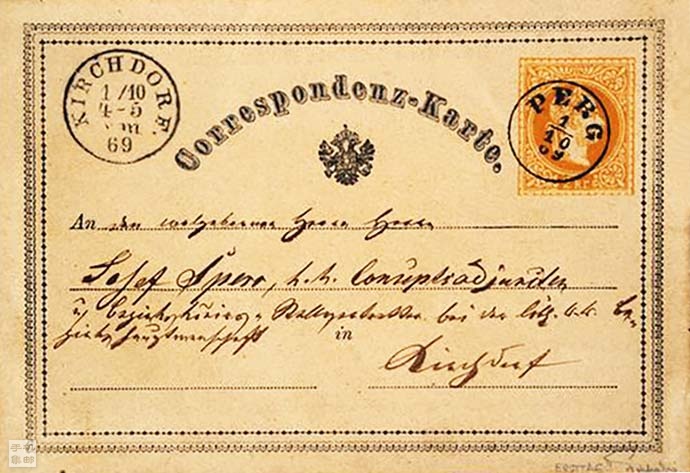 KIRCHDORF.
1/10
4-5
69
Correspondenz-Karte.
PERG
1
10
69
An den wolgebornen Herrn Herrn
Josef Spero, k.k. Conceptsadjuncten
bei der löbl. k.k. Be-
zirkshauptmannschaft
in
Kirchdorf